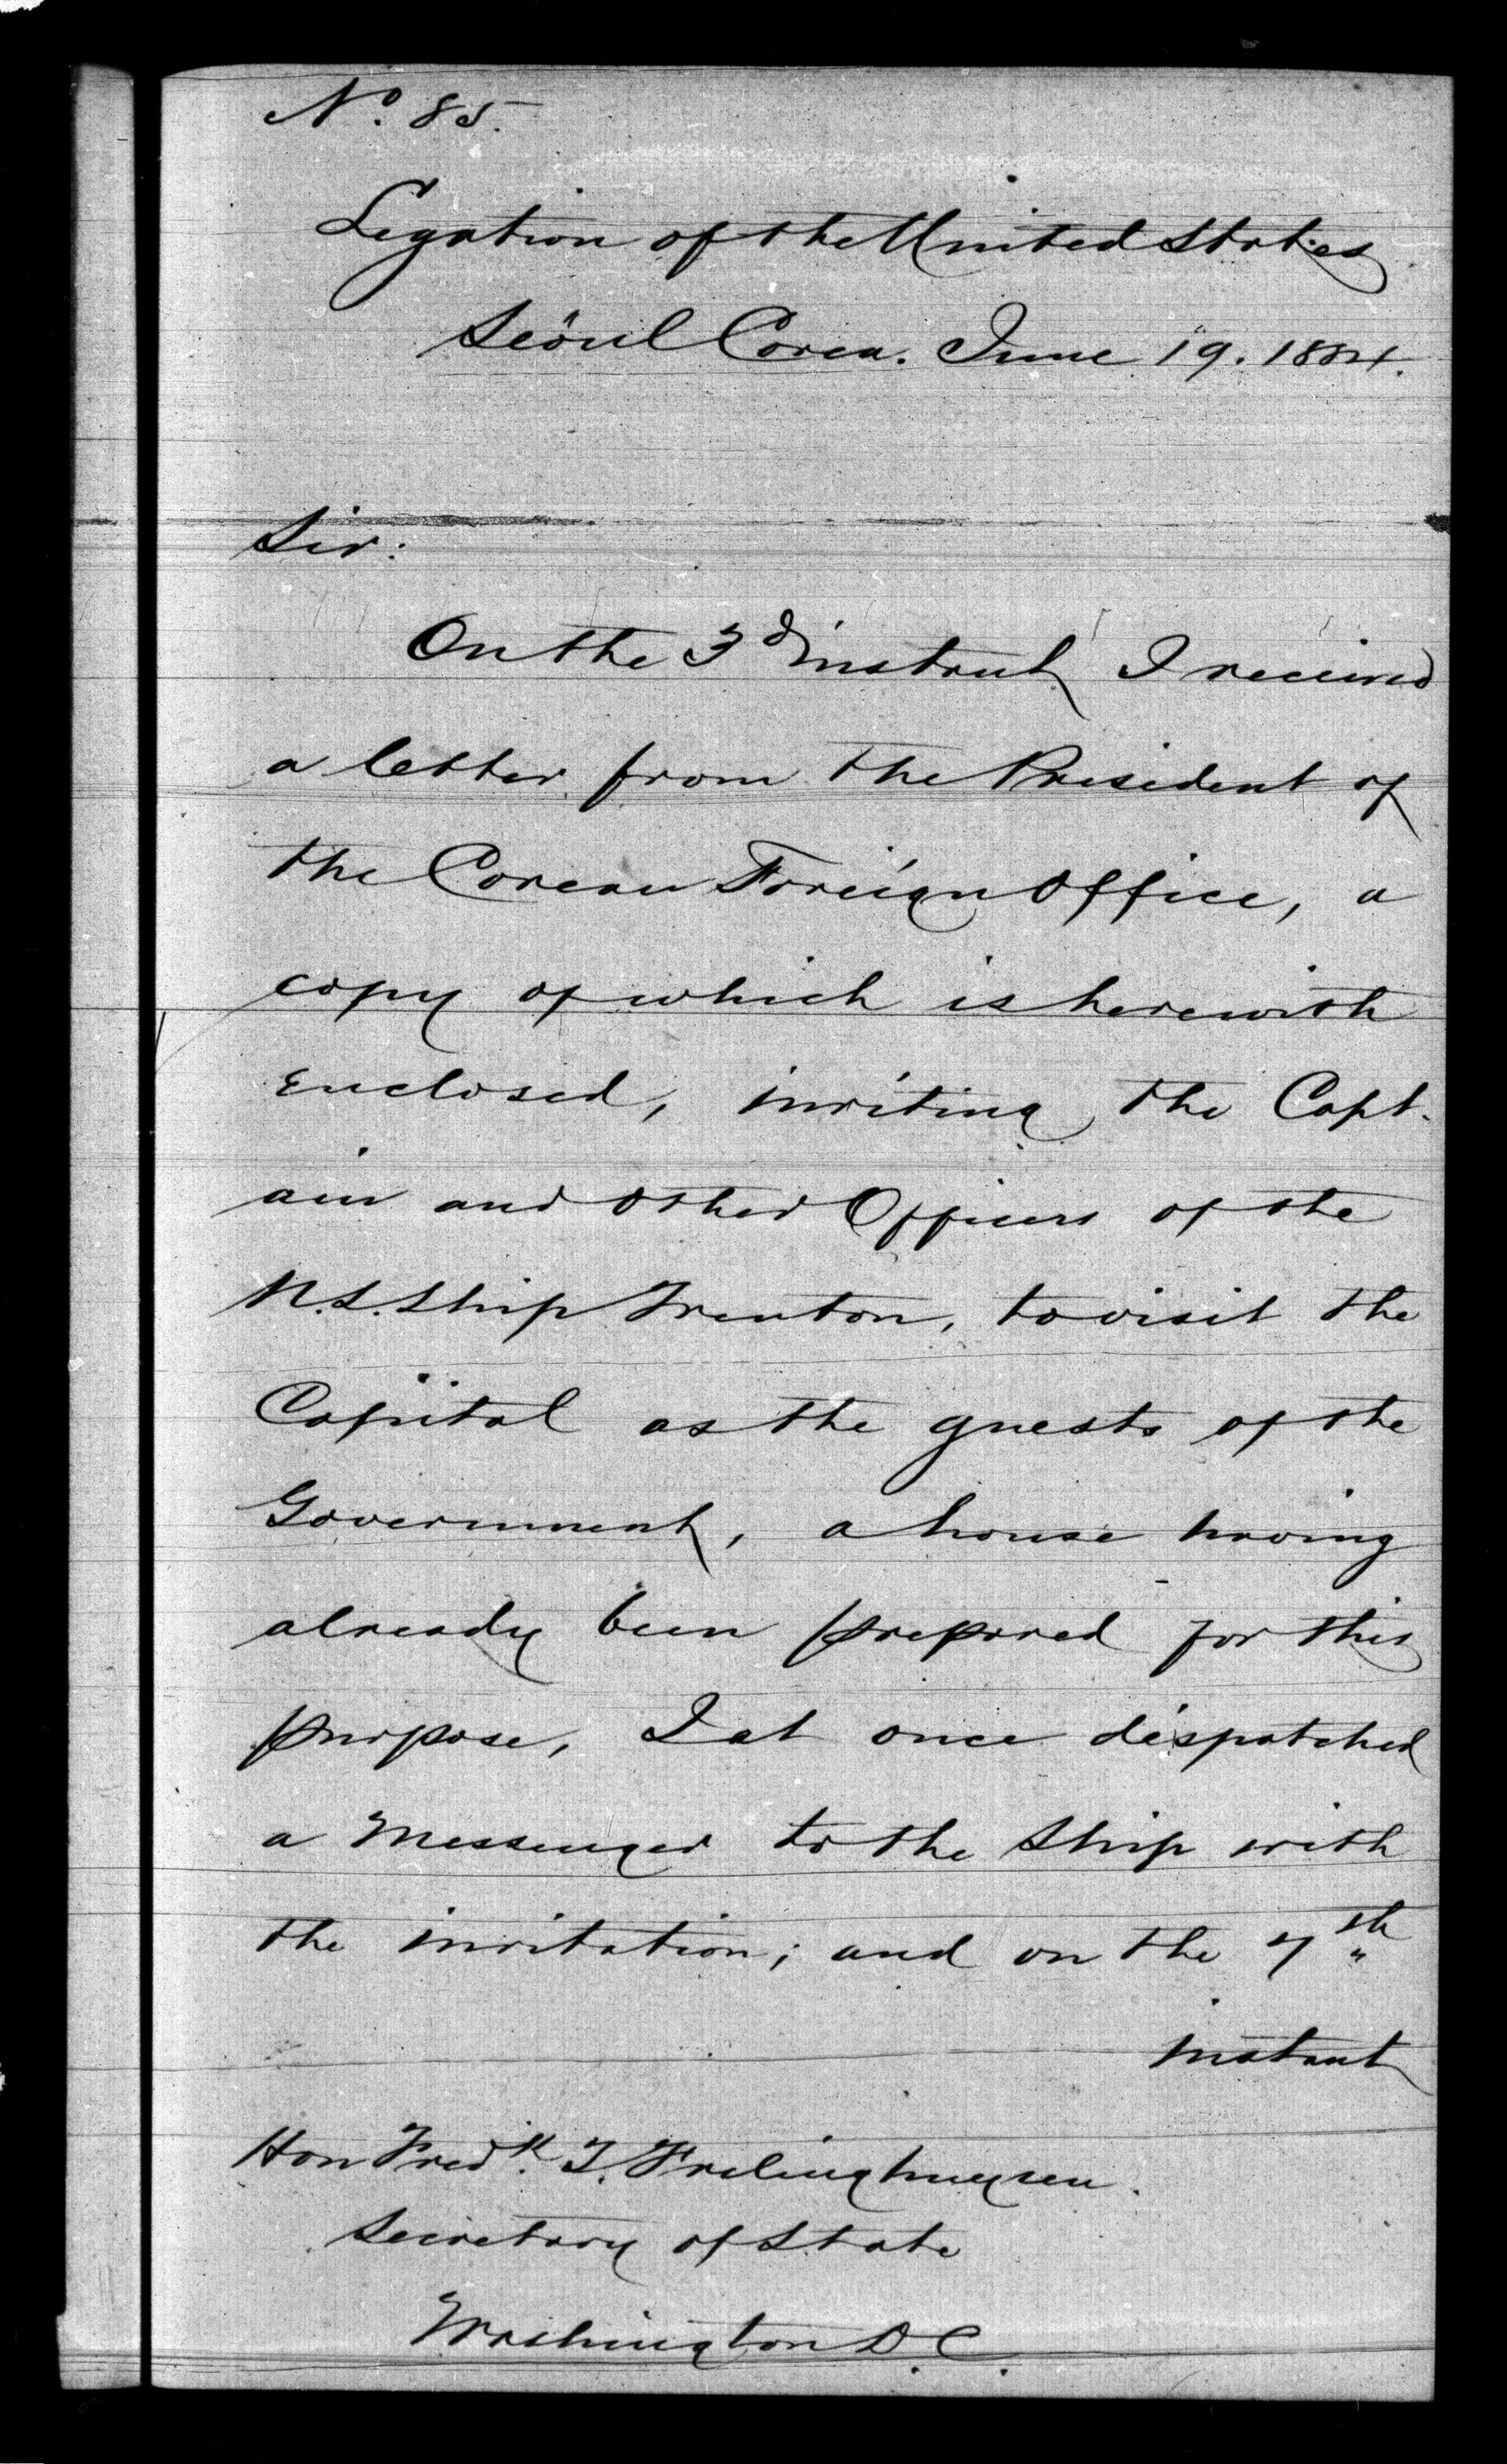 No. 85.
Legation of the United States
Seöul Corea. June 19. 1884.
Sir:
On the 3d instant I received
a letter from the President of
the Corean Foreign Office, a
copy of which is herewith
enclosed, inviting the Capt-
ain and other Officers of the
U.S. Ship Trenton, to visit the
Capital as the guests of the
Government, a house having
already been prepared for this
purpose, I at once despatched
a Messenger to the Ship with
the invitation; and on the 7th
instant
Hon Fredk. T. Frelinghuysen.
Secretary of State
Washington D.C.